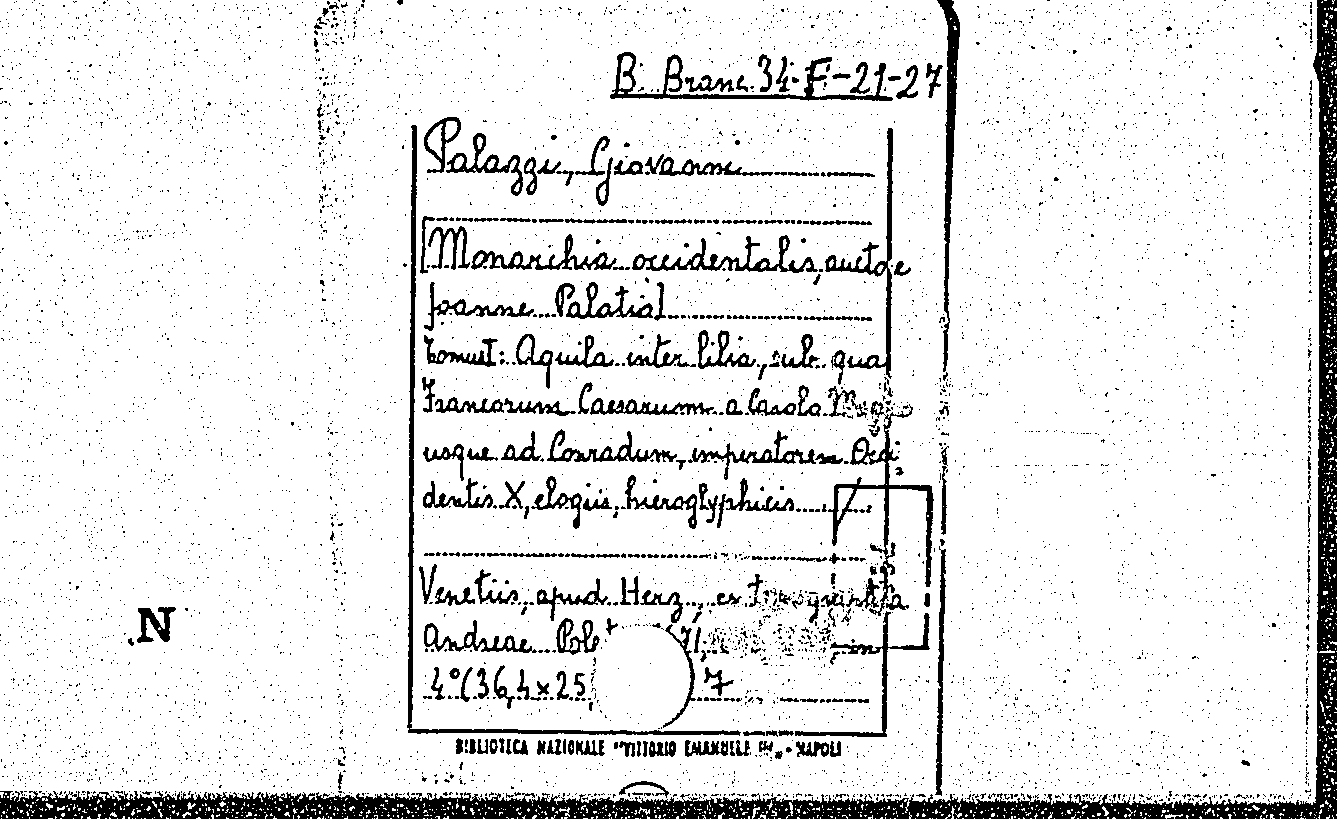 B. Branc. 34-F-21-27
Palazzi, Giovanni
[Monarchia occidentalis, auctore
Joanne Palatio]
Tomus I: Aquila inter lilia, sub qua
Francorum Caesarum a Carolo
usque ad Conradum, imperatorem Occi-
dentis X, elogiis, hieroglyphicis
Venetiis, apud Herz, ex
Andreae in
4°(36,4x25
N
BIBLIOTECA NAZIONALE "VITTORIO EMANUELE III" - NAPOLI